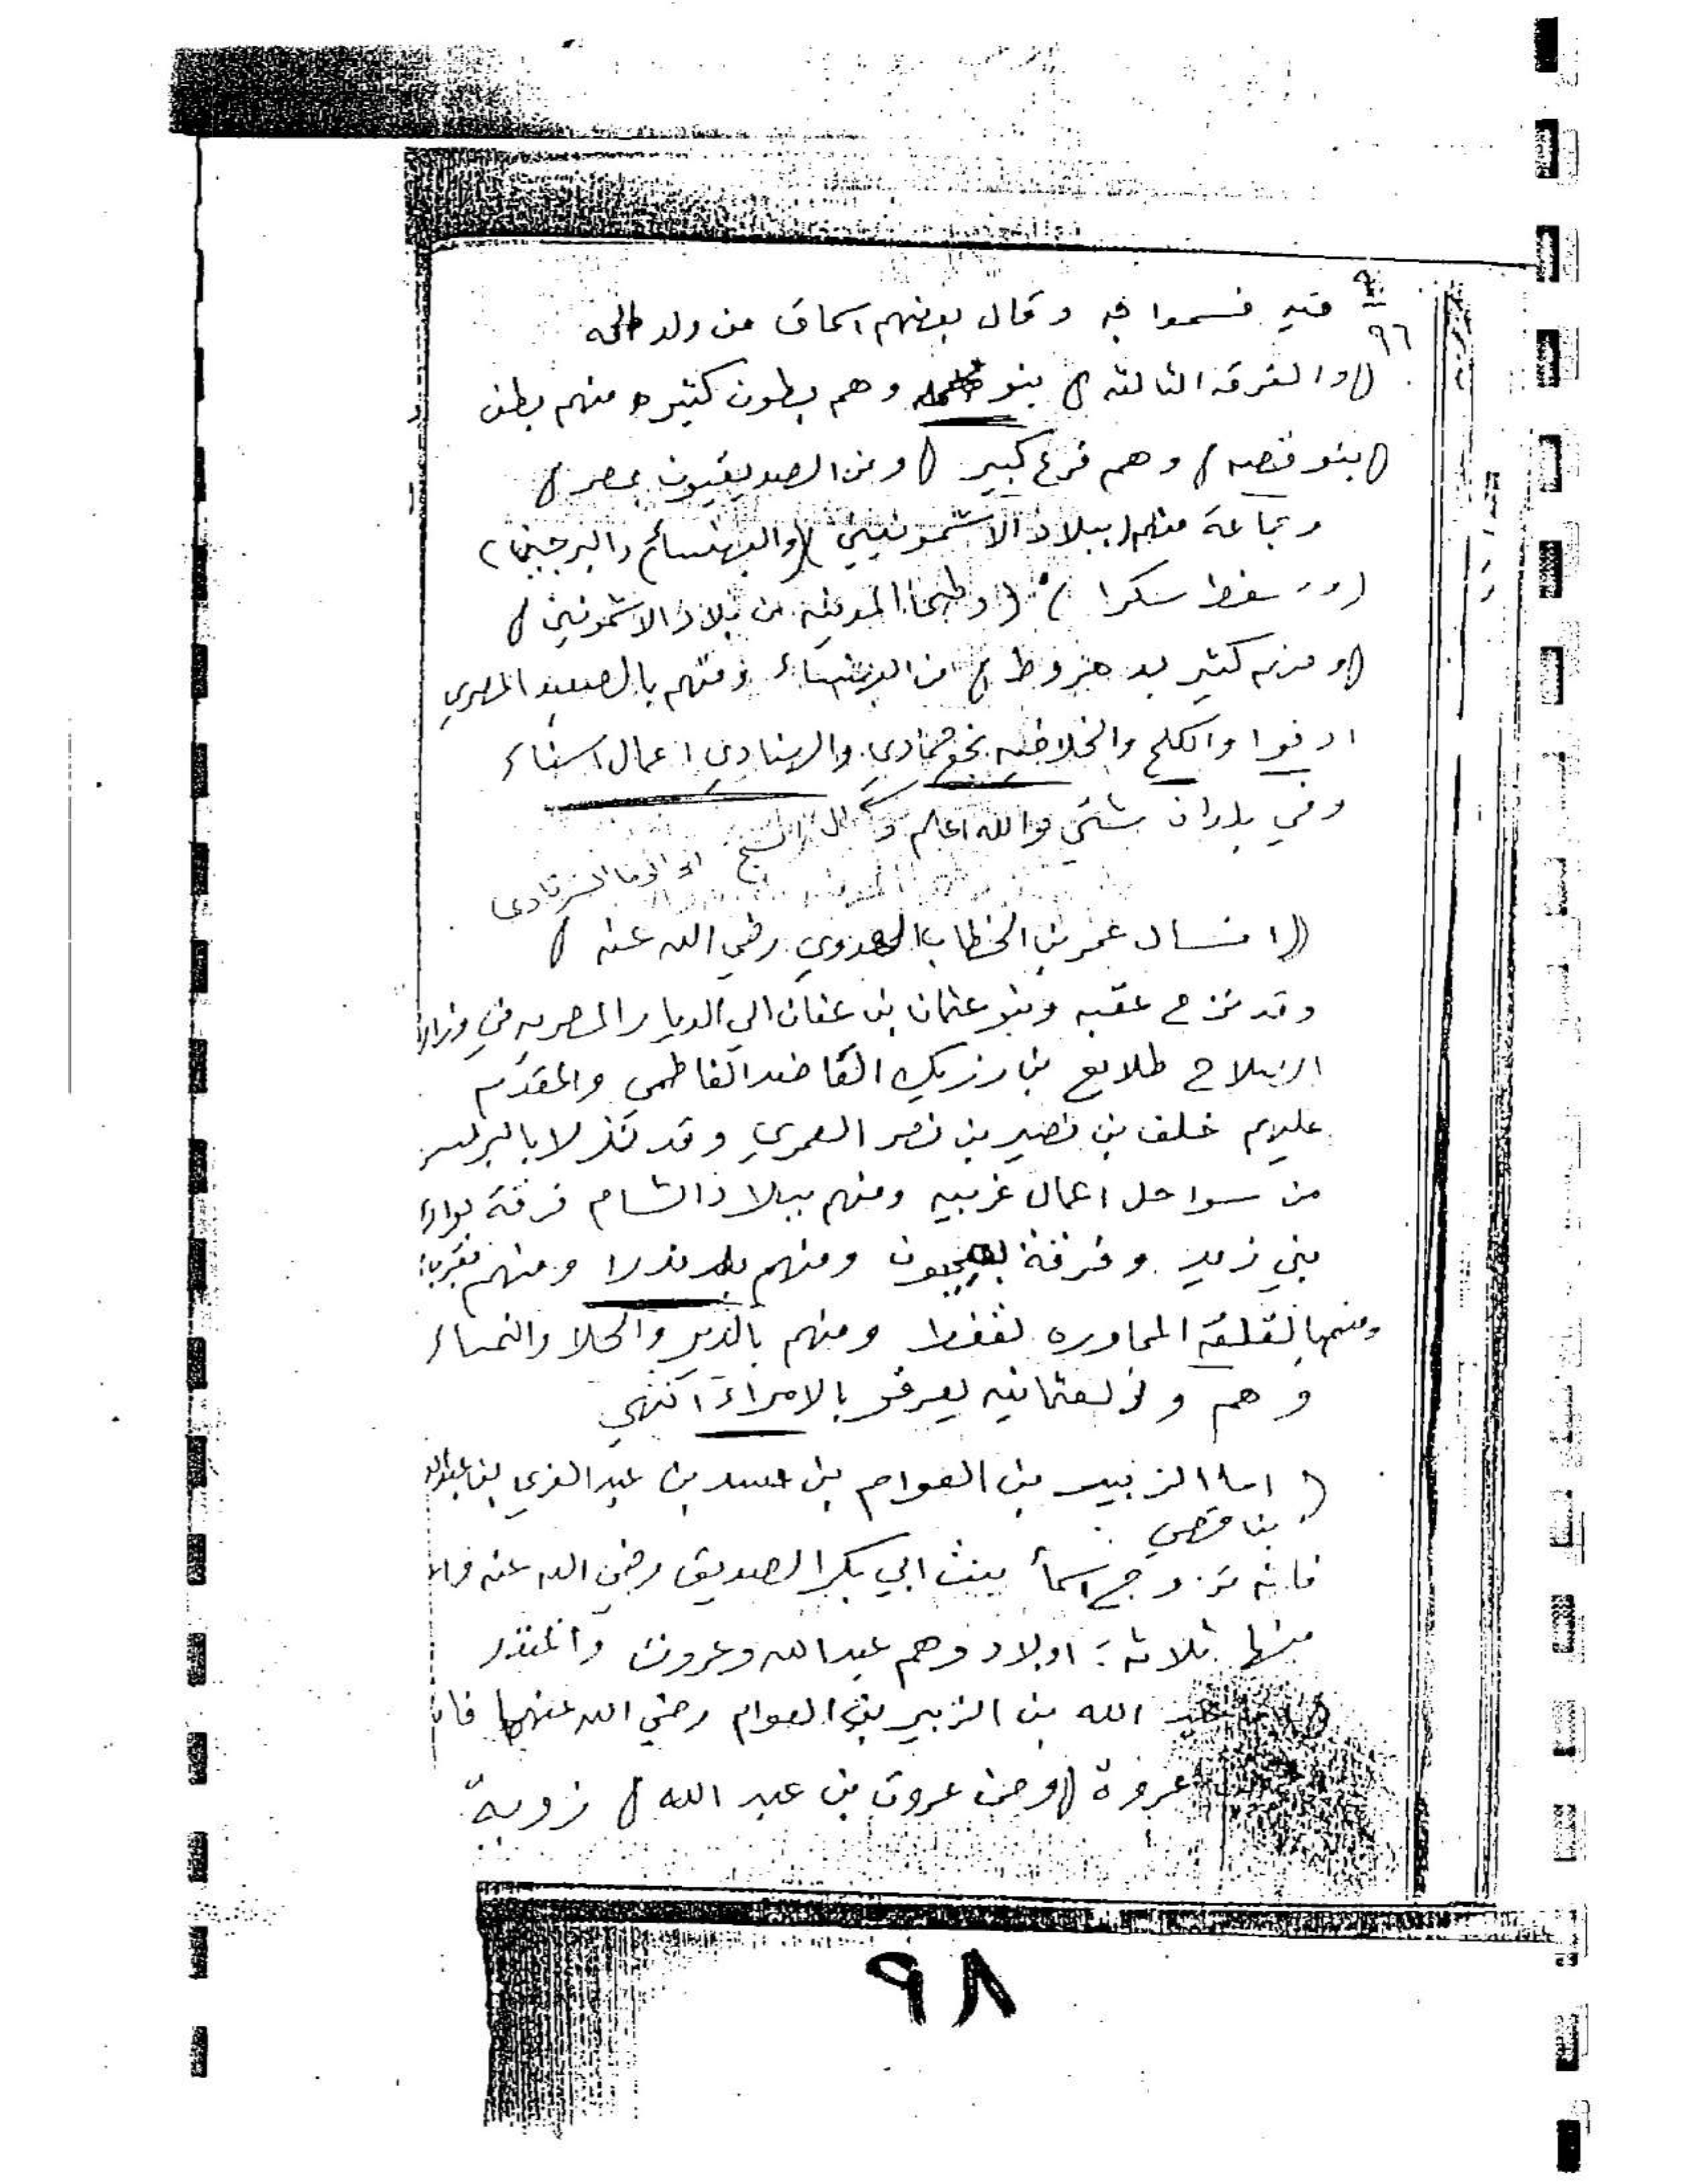 ٩٦
فيه فسموا به وقال بعضهم اسحاق من ولد طلحه
(والفرقه الثالثه) بنو وهم بطون كثيره منهم بطن
(بنو قصه) وهم فرع كبير (ومن الصديقيون بمصر)
وجماعة منهم ببلاد الاشمونين (والبهنسا
سفط سكرا) (وطحا المدينه من بلاد الاشمونين)
(ومنهم كثير من البهنساء ومنهم بالصعيد المصري
ادفوا والكلح والخلافيه بنجع حمادى والهنادى اعمال اسناء
وفي بلدان شتي والله اعلم وقال الشيخ ابو الوفا الشرقاوى
(انساب عمر بن الخطاب العدوي رضي الله عنه)
وقد نزح عقبه وبنو عثمان بن عفان الي الديار المصريه في وزارة
الصلاح طلايع بن رزيك الفاطمى والمقدم
عليهم خلف بن نصير بن نصر العمري وقد نزلا بالبرلس
من سواحل اعمال غربيه ومنهم ببلاد الشام فرقة بوادي
بني زيد وفرقة بعجلون ومنهم ومنهم بقرية
ومنهم بالقلعة المجاوره لقفط ومنهم بالدير والحلا والنمساء
وهم ولد لعثمانيه يعرفو بالامراء انتهي
(اما الزبير بن العوام بن اسد بن عبد العزي بن
بن قصي
فانه تزوج اسمأ بنت ابي بكر الصديق رضي الله عنه
منها ثلاثة اولاد وهم عبد الله وعروة والمنذر
عبد الله بن الزبير بن العوام رضي الله عنهما
عروة (ومن عروة بن عبد الله)
٩٨